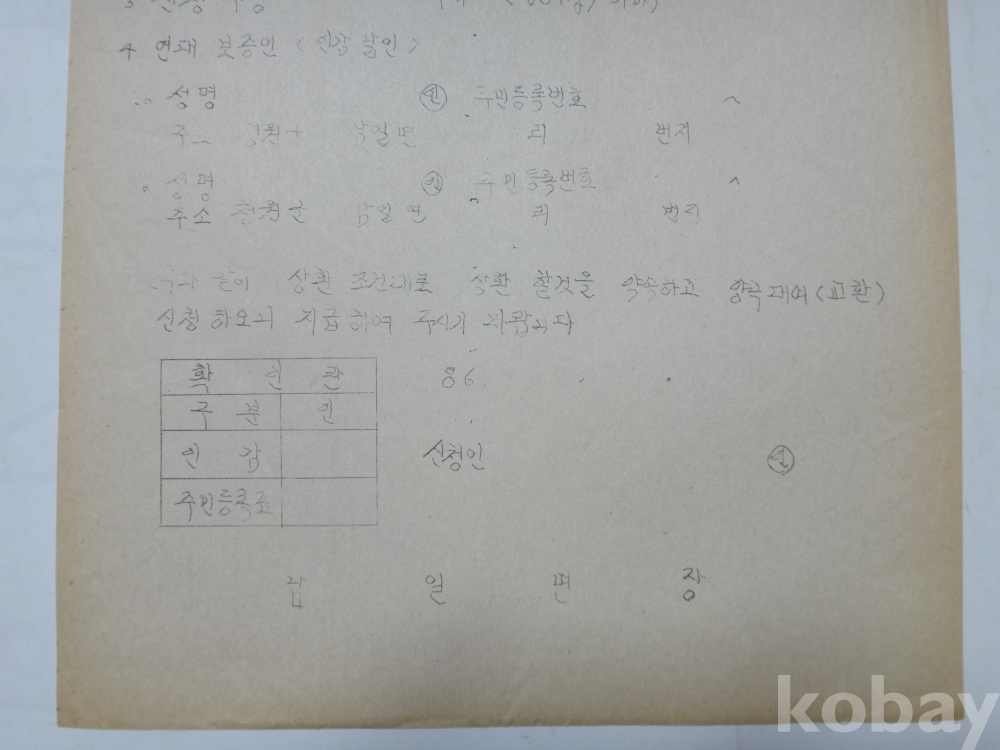 4 연대 보증인 (인감 날인)
성명 ㊞ 주민등록번호
주소 청원군 남일면 리 번지
성명 ㊞ 주민등록번호
주소 청원군 남일면 리 번지
같이 상환 조건대로 상환 할것을 약속하고 양곡대여(교환)
신청하오니 지급하여 주시기 바랍니다
확 인 란
구 분 인
인 감
주민등록표
86.
신청인 ㊞
남 일 면 장
kobay